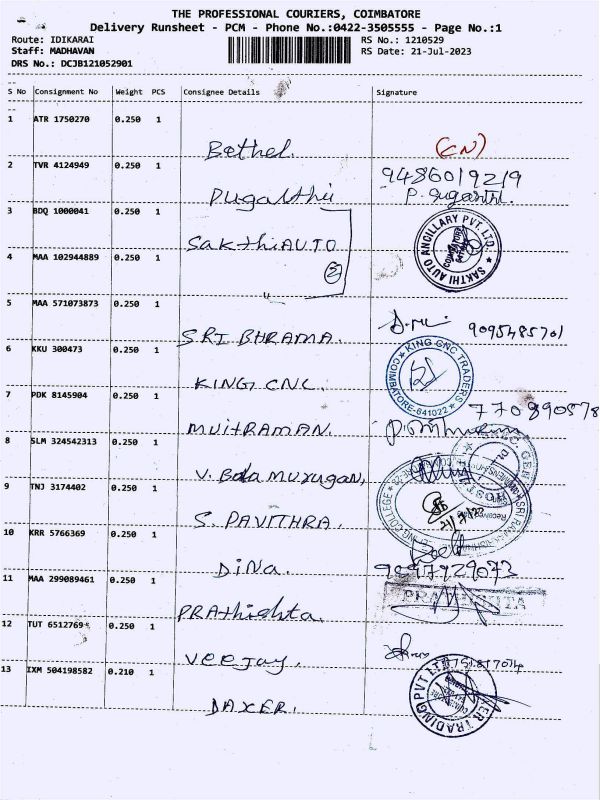 THE PROFESSIONAL COURIERS, COIMBATORE
Delivery Runsheet - PCM - Phone No.:0422-3505555 - Page No.:1
Route: IDIKARAI RS No.: 1210529
Staff: MADHAVAN RS Date: 21-Jul-2023
DRS No.: DCJB121052901
S No Consignment No Weight PCS Consignee Details Signature
1 ATR 1750270 0.250 1
Bethel. (CN)
2 TVR 4124949 0.250 1 9486019219
Pugalthii P. Sugantri.
3 BDQ 1000041 0.250 1
Sakthi AUTO SAKTHI AUTO ANCILLARY PVT. LTD.
4 MAA 102944889 0.250 1 (2)
5 MAA 571073873 0.250 1
SRI BHRAMA. 9095485701
6 KKU 300473 0.250 1 KING CNC TRADERS
KING CNC. COIMBATORE-641022
7 PDK 8145904 0.250 1 770890578
MUITRAMAN.
8 SLM 324542313 0.250 1
V. Bala Murugan,
9 TNJ 3174402 0.250 1
S. PAVITHRA.
10 KRR 5766369 0.250 1
DiNa. 9897929072
11 MAA 299089461 0.250 1
PRAthishta.
12 TUT 6512769 0.250 1
Veejay.
13 IXM 504198582 0.210 1
DAXER.